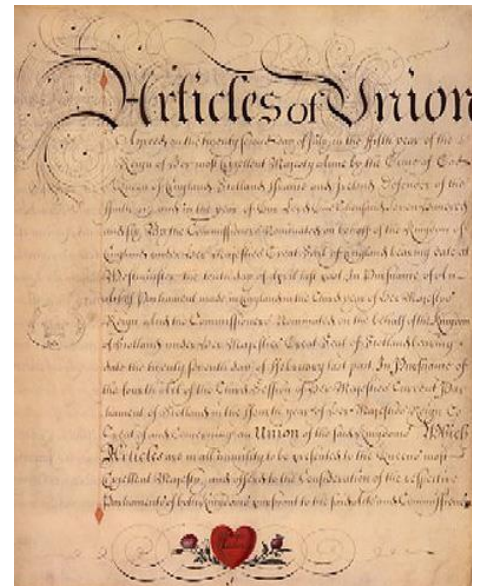 Articles of Union
Agreed on the twenty second day of July, in the fifth year of the
Reign of Her most Excellent Majesty Anne by the Grace of God
Queen of England Scotland France and Ireland Defender of the
Faith &c and in the year of Our Lord One thousand seven hundred
and six By the Commissioners Nominated on behalf of the Kingdom of
England under Her Majesties Great Seal of England bearing date at
Westminster the tenth day of April last past In Pursuance of An
act of Parliament made in England in the third year of Her Majesties
Reign and the Commissioners Nominated on the behalf of the Kingdom
of Scotland under Her Majesties Great Seal of Scotland bearing
date the twenty seventh day of February last past In Pursuance of
the fourth Act of the third Session of Her Majesties Current Par
liament of Scotland in the fourth year of Her Majesties Reign to
Treat of and Concerning an Union of the said Kingdoms Which
Articles are in all humility to be presented to the Queens most
Excellent Majesty and offered to the Consideration of the respective
Parliaments of both Kingdoms pursuant to the said Acts and Commissions